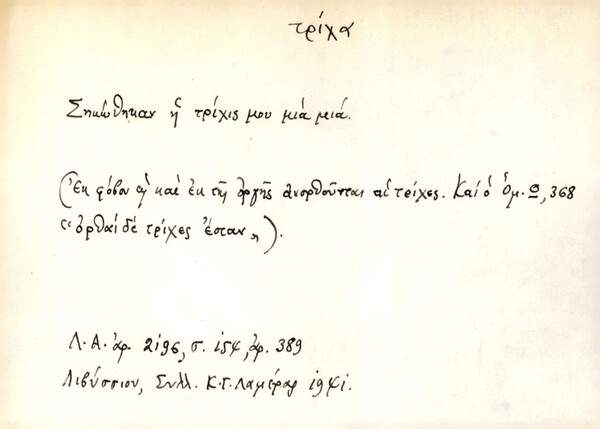 τρίχα
Σηκώθηκαν ἡ τρίχις μου μιά μειά.
(Ἐκ φόβου ἢ καὶ ἐκ τῆς ὀργῆς ἀνορθοῦνται αἱ τρίχες. Καί ὁ Ὁμ. Ω, 368
"ὀρθαί δὲ τρίχες ἔσταν").
Λ.Α. ἀρ. 2196, σ. 154, ἀρ. 389
Λιβύσσιον, Συλλ. Κ.Γ. Λαμέρας 1941.